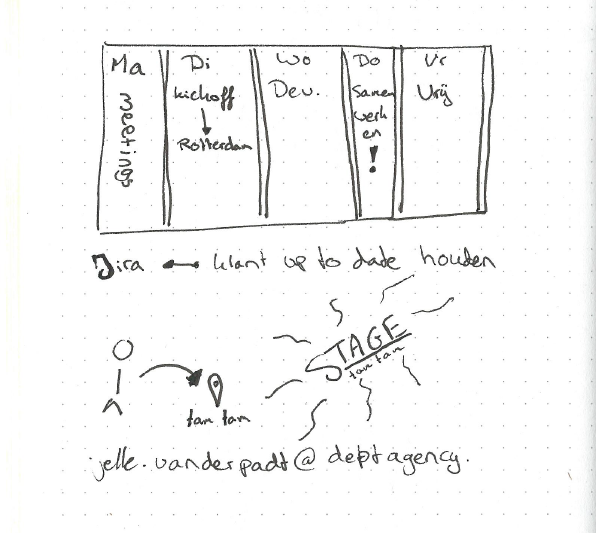 Ma
meetings
Di
kickoff
Rotterdam
Wo
Dev.
Do
Samen
werk
en
!
Vr
Vrij
Jira klant up to date houden
STAGE
tam tam
tam tam
jelle.vanderpadt@deptagency.